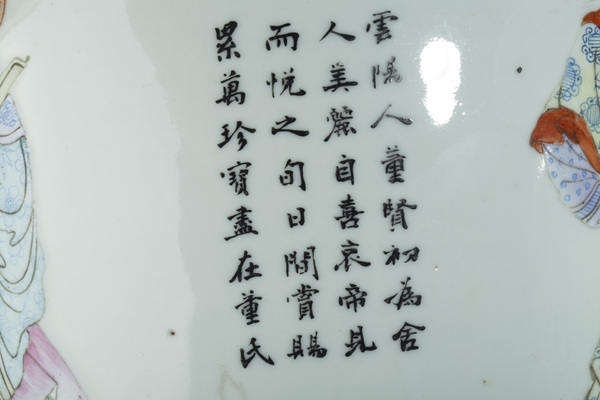 雲陽人董賢初為舍
人美麗自喜哀帝見
而悅之旬日間賞賜
累萬珍寶盡在董氏